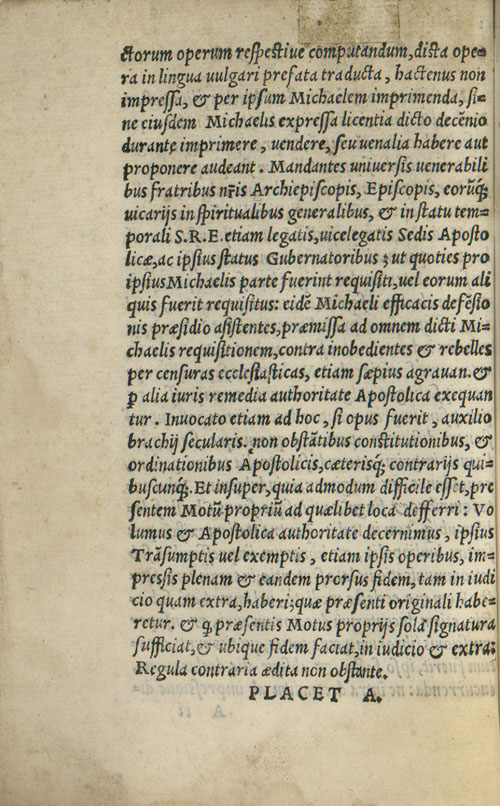 ctorum operum respectiue computandum, dicta ope=
ra in lingua uulgari prefata traducta, hactenus non
impressa, & per ipsum Michaelem imprimenda, si=
ne eiusdem Michaelis expressa licentia dicto decēnio
durante imprimere, uendere, seu uenalia habere aut
proponere audeant. Mandantes uniuersis uenerabili
bus fratribus nr̃is Archiepiscopis, Episcopis, eorūq;
uicarijs in spiritualibus generalibus, & in statu tem=
porali S.R.E. etiam legatis, uicelegatis Sedis Aposto
licæ, ac ipsius status Gubernatoribus ; ut quoties pro
ipsius Michaelis parte fuerint requisiti, uel eorum ali
quis fuerit requisitus: eidē Michaeli efficacis defēsio
nis præsidio asistentes, præmissa ad omnem dicti Mi=
chaelis requisitionem, contra inobedientes & rebelles
per censuras ecclesiasticas, etiam sæpius agrauan. &
ꝑ alia iuris remedia authoritate Apostolica exequan
tur. Inuocato etiam ad hoc, si opus fuerit, auxilio
brachij secularis. non obstātibus constitutionibus, &
ordinationibus Apostolicis, cæterisq; contrarijs qui=
buscunq;. Et insuper, quia admodum difficile esset, pre
sentem Motū propriū ad quælibet loca defferri : Vo
lumus & Apostolica authoritate decernimus, ipsius
Trāsumptis uel exemptis, etiam ipsis operibus, im=
pressis plenam & eandem prorsus fidem, tam in iudi
cio quam extra, haberi; quæ præsenti originali habe=
retur. & q̃ præsentis Motus proprijs sola signatura
sufficiat, & ubique fidem faciat, in iudicio & extra:
Regula contraria ædita non obstante.
PLACET A.